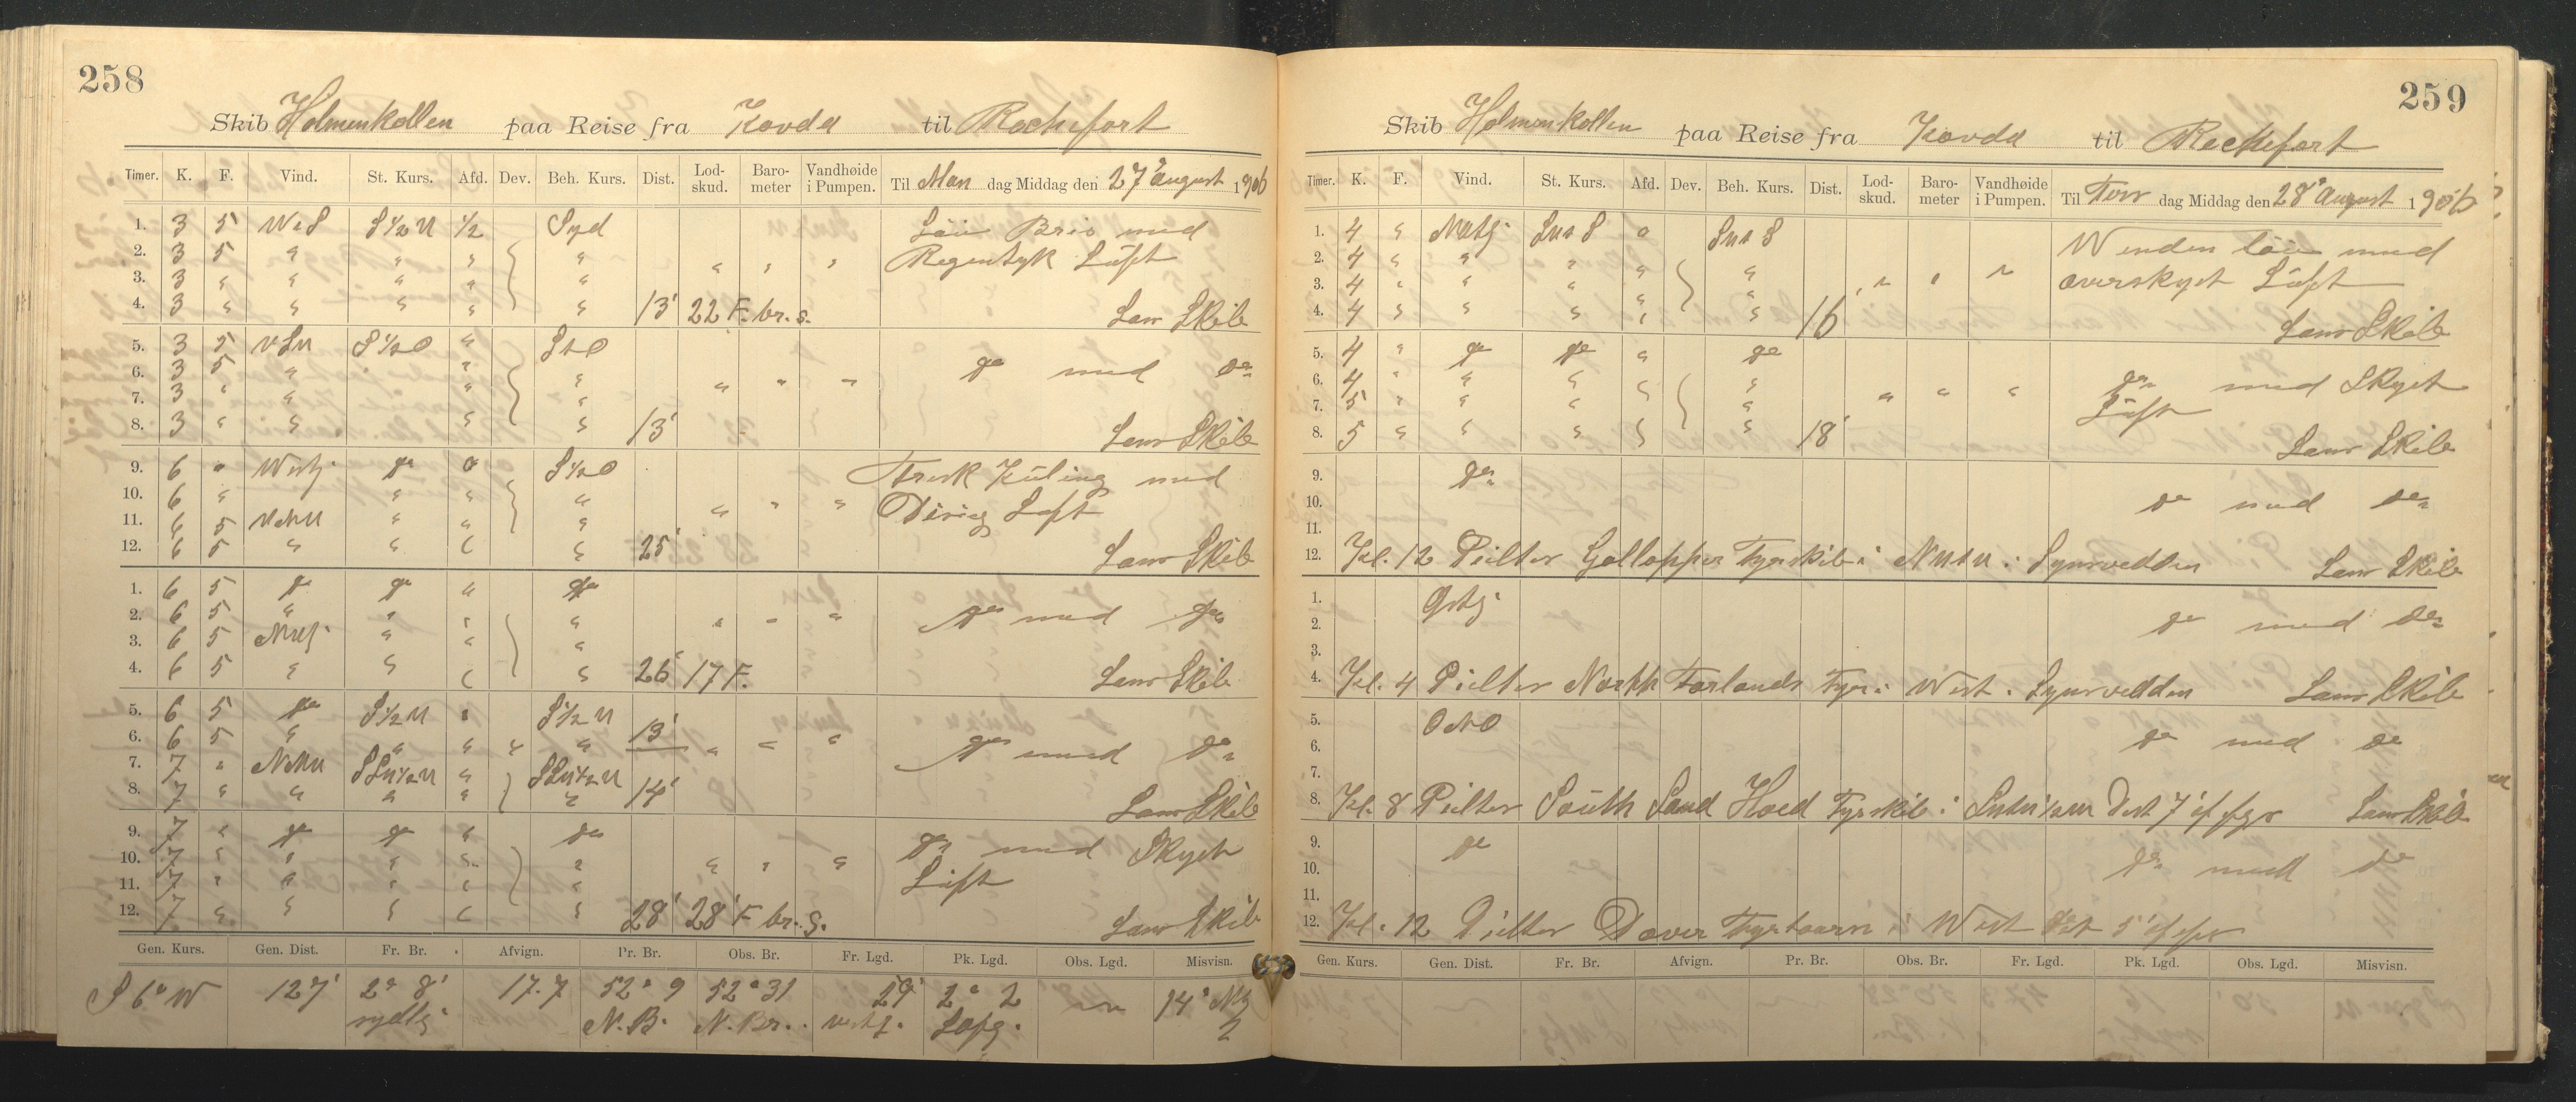 258
Skib Holmenkollen paa Reise fra Kovda til Rochefort
Timer. K. F. Vind. St. Kurs. Afd. Dev. Beh. Kurs. Dist. Lod-skud. Baro-meter Vandhøide i Pumpen. Til Man dag Middag den 27 August 1906
1. 3 5 S½ ½ Syd Løi Bris med
2. 3 5 " " " " " " " Regntyk Luft
3. 3 " " " " "
4. 3 " " " " " 13' 22 F. br. s. Lens Skib
5. 3 5 S½O " StO
6. 3 5 " " " " " " do med do
7. 3 " " " "
8. 3 " " " " 13' Lens Skib
9. 6 " Westl. do o S½O Frisk Kuling med
10. 6 " " " " " " " Disig Luft
11. 6 5 " " "
12. 6 5 " " " " 25' Lens Skib
1. 6 5 do do " do
2. 6 5 " " " " " " " do med do
3. 6 5 " " "
4. 6 5 " " " " 26' 17 F. Lens Skib
5. 6 5 do
6. 6 5 " " " " " 13' " " " do med do
7. 7 " "
8. 7 " " " " " 14' Lens Skib
9. 7 " do do " do
10. 7 " " " " " " " " do med Skyet
11. 7 " " " " " Luft
12. 7 " " " " " 28' 28 F br. s. Lens Skib
Gen. Kurs. Gen. Dist. Fr. Br. Afvign. Pr. Br. Obs. Br. Fr. Lgd. Pk. Lgd. Obs. Lgd. Misvisn.
S 6° W 127' 2° 8' 17.7 52° 9 52° 31 29' 2° 2 14°
sydlg. N. B. N. Br. vestl.
259
Skib Holmenkollen paa Reise fra Kovda til Rochefort
Timer. K. F. Vind. St. Kurs. Afd. Dev. Beh. Kurs. Dist. Lod-skud. Baro-meter Vandhøide i Pumpen. Til Tirs dag Middag den 28 August 1906
1. 4 " o Winden løi med
2. 4 " " " " " " " " overskyet Luft
3. 4 " " " " "
4. 4 " " " " " 16' Lens Skib
5. 4 " do do " do
6. 4 " " " " " " " " do med Skyet
7. 5 " " " " Luft
8. 5 " " " " " 18' Lens Skib
9. do
10. do med do
11.
12. Kl. 12 Peilter Gallopper Fyrskib i Synsvidden Lens Skib
1. Ostlg
2. do med do
3.
4. Kl. 4 Peilter North Forlands Fyr i West. Synsvidden Lens Skib
5. ONO
6. do med do
7.
8. Kl. 8 Peilter South Sand Hoed Fyrskib i Dist 7' af Lens Skib
9. do
10. do med do
11.
12. Kl. 12 Peilter Dover Fyrtaarn i West Dist 5' af
Gen. Kurs. Gen. Dist. Fr. Br. Afvign. Pr. Br. Obs. Br. Fr. Lgd. Pk. Lgd. Obs. Lgd. Misvisn.